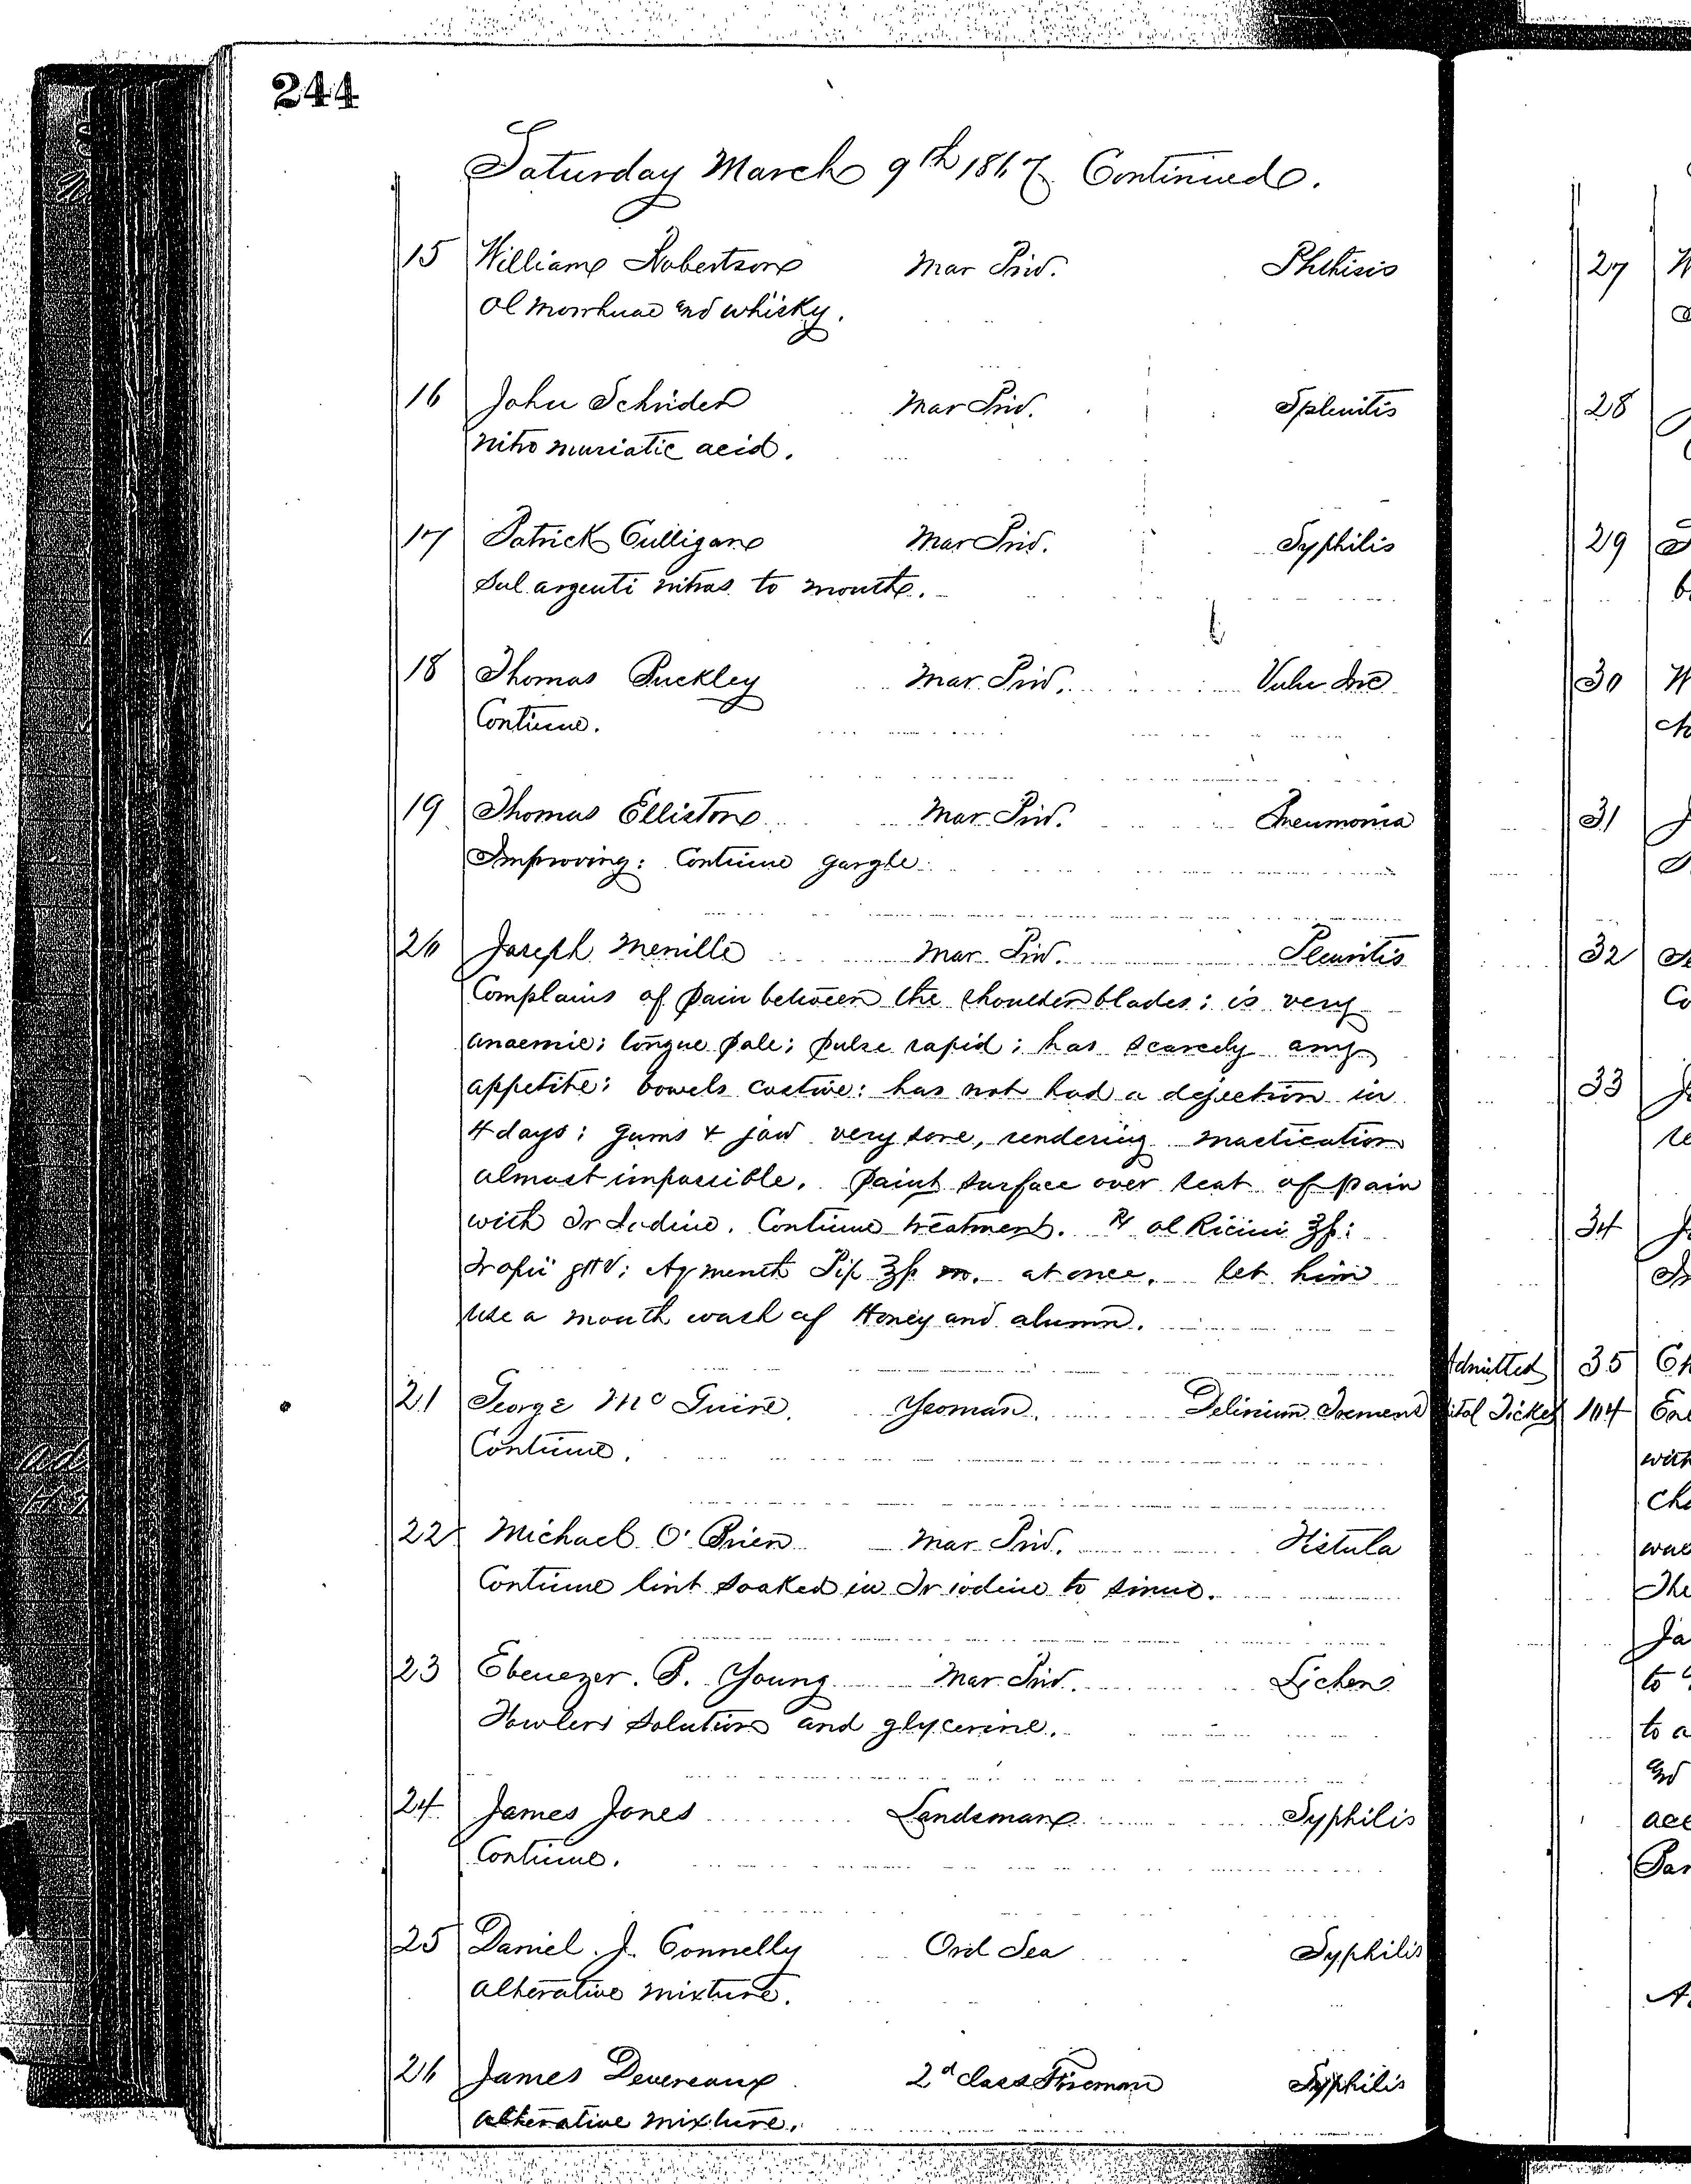 244
Saturday March 9th 1867 Continued.
15 William Robertson Mar Priv. Phthisis
Ol Morrhuae and whisky.
16 John Schrider Mar Priv. Splenitis
Nitro muriatic acid.
17 Patrick Culligan Mar Priv. Syphilis
Sul argenti nitras to mouth.
18 Thomas Buckley Mar Priv. Vuln Inc
Continue.
19 Thomas Elliston Mar Priv. Pneumonia
Improving: Continue gargle.
20 Joseph Menille Mar Priv. Pleuritis
Complains of pain between the shoulder blades; is very
anaemic; tongue pale; pulse rapid; has scarcely any
appetite; bowels costive: has not had a dejection in
4 days; gums & jaw very sore, rendering mastication
almost impossible. Paint surface over seat of pain
with Tr Iodine. Continue treatment. ℞ Ol Ricini ℥fs:
Tr opii gtt V; Aq menth Pip ℥fs m. at once. let him
use a mouth wash of Honey and alumn.
21 George McGuire. Yeoman. Delirium Tremens
Continue.
22 Michael O'Brien Mar Priv. Fistula
Continue lint soaked in Tr iodine to sinus.
23 Ebenezer. P. Young Mar Priv. Lichen
Fowlers Solution and glycerine.
24 James Jones Landsman Syphilis
Continue.
25 Daniel J. Connelly Ord Sea Syphilis
Alterative mixture.
26 James Devereaux 2d class Fireman Syphilis
Alterative mixture.
27
28
29
30
31
32
33
34
Admitted 35
ital Ticket 104
with
The
to
to a
and